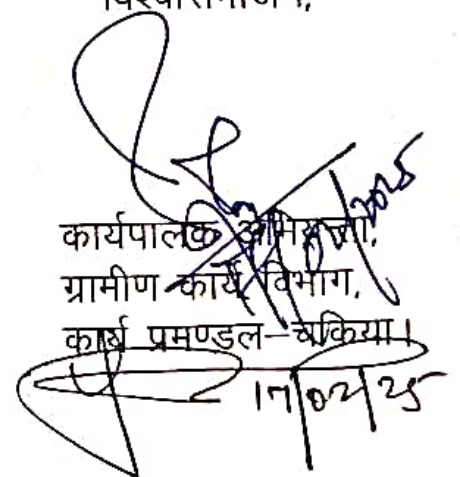 विश्वासभाजन,
कार्यपालक अभियन्ता,
ग्रामीण कार्य विभाग,
कार्य प्रमण्डल-चकिया।
17/02/25